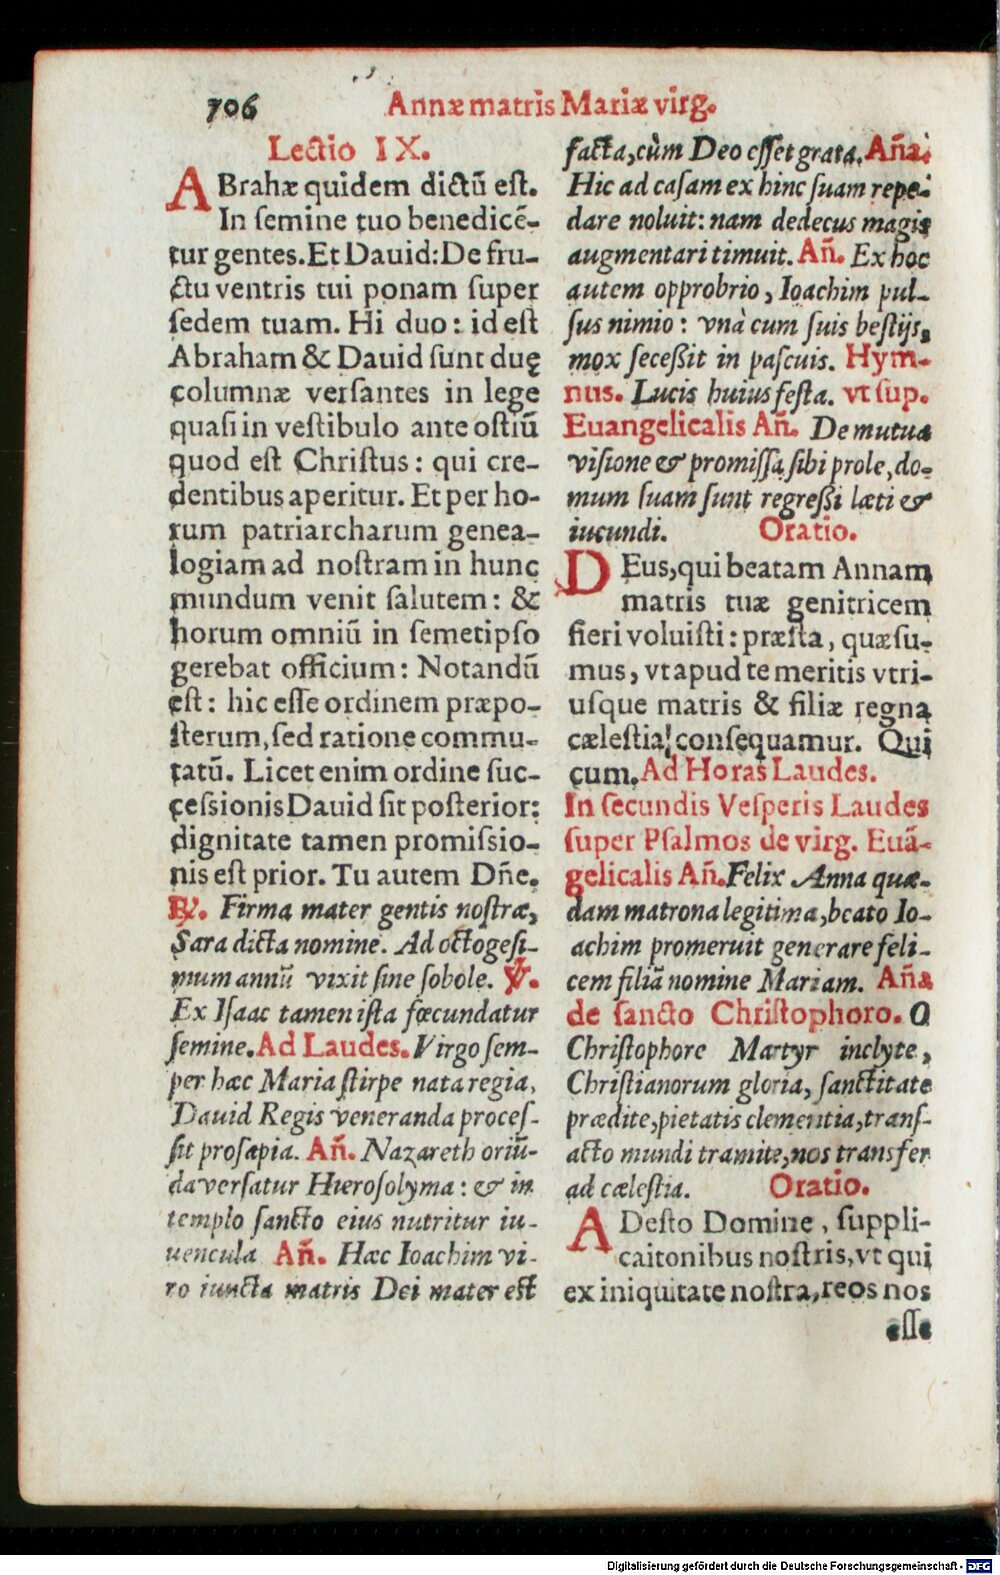 706
Annæ matris Mariæ virg.
Lectio IX.
ABrahæ quidem dictū est.
In ſemine tuo benedicē-
tur gentes. Et Dauid: De fru-
ctu ventris tui ponam ſuper
ſedem tuam. Hi duo: id eſt
Abraham & Dauid ſunt duę
columnæ verſantes in lege
quaſi in veſtibulo ante oſtiū
quod eſt Chriſtus: qui cre-
dentibus aperitur. Et per ho-
rum patriarcharum genea-
logiam ad noſtram in hunc
mundum venit ſalutem: &
horum omniū in ſemetipſo
gerebat officium: Notandū
eſt: hic eſſe ordinem præpo-
ſterum, ſed ratione commu-
tatū. Licet enim ordine ſuc-
ceſsionis Dauid ſit poſterior:
dignitate tamen promiſsio-
nis eſt prior. Tu autem Dñe.
℟. Firma mater gentis noſtræ,
Sara dicta nomine. Ad octogeſi-
mum annū vixit ſine ſobole. ℣.
Ex Iſaac tamen iſta fœcundatur
ſemine. Ad Laudes. Virgo ſem-
per hæc Maria ſtirpe nata regia,
Dauid Regis veneranda proceſ-
ſit proſapia. Añ. Nazareth oriū-
da verſatur Hieroſolyma: & in
templo ſancto eius nutritur iu-
uencula Añ. Hæc Ioachim vi-
ro iuncta matris Dei mater eſt
facta, cùm Deo eſſet grata. Aña.
Hic ad caſam ex hinc ſuam repe-
dare noluit: nam dedecus magis
augmentari timuit. Añ. Ex hoc
autem opprobrio, Ioachim pul-
ſus nimio: vnà cum ſuis beſtijs,
mox ſeceßit in paſcuis. Hym-
nus. Lucis huius feſta. vt ſup.
Euangelicalis Añ. De mutua
viſione & promiſſa ſibi prole, do-
mum ſuam ſunt regreßi læti &
iucundi. Oratio.
DEus, qui beatam Annam
matris tuæ genitricem
fieri voluiſti: præſta, quæſu-
mus, vt apud te meritis vtri-
uſque matris & filiæ regna
cæleſtia conſequamur. Qui
cum. Ad Horas Laudes.
In ſecundis Veſperis Laudes
ſuper Pſalmos de virg. Euā-
gelicalis Añ. Felix Anna quæ-
dam matrona legitima, beato Io-
achim promeruit generare feli-
cem filiā nomine Mariam. Aña
de ſancto Chriſtophoro. O
Chriſtophore Martyr inclyte,
Chriſtianorum gloria, ſanctitate
prædite, pietatis clementia, tranſ-
acto mundi tramite, nos transfer
ad cæleſtia. Oratio.
ADeſto Domine, ſuppli-
caitonibus noſtris, vt qui
ex iniquitate noſtra, reos nos
eſſe
Digitalisierung gefördert durch die Deutsche Forschungsgemeinschaft - DFG